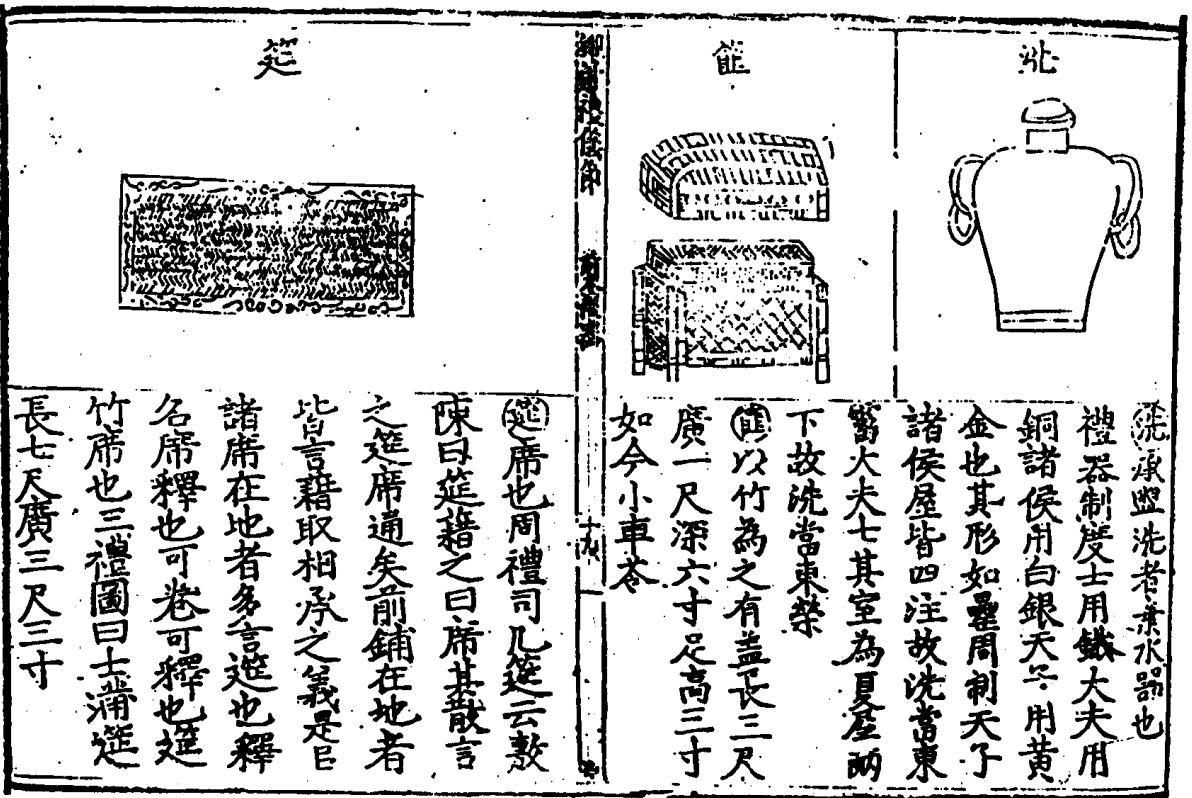 洗
篚
洗承盥洗者棄水器也
禮器制度士用鐵大夫用
銅諸侯用白銀天子用黃
金也其形如罍周制天子
諸侯屋皆四注故洗當東
霤大夫士其室為夏屋兩
下故洗當東榮
篚以竹為之有蓋長三尺
廣一尺深六寸足高三寸
如今小車笭
鄉射禮儀節
十九
筵
筵席也周禮司几筵云敷
陳曰筵藉之曰席其散言
之筵席通矣前鋪在地者
皆言藉取相承之義是以
諸席在地者多言筵也釋
名席釋也可卷可釋也筵
竹席也三禮圖曰士蒲筵
長七尺廣三尺三寸